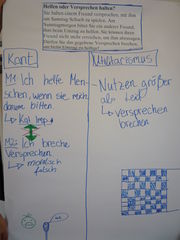 Helfen oder Versprechen halten?
Sie haben einem Freund versprochen, mit ihm
am Samstag Schach zu spielen. Am
Samstagmorgen bittet Sie ein anderer Freund,
ihm beim Umzug zu helfen. Sie können ihrem
Freund nicht mehr erreichen, um ihm abzusagen.
Dürfen Sie das gegebene Versprechen brechen,
um beim Umzug zu helfen?
Kant
M1: Ich helfe Men-
schen, wenn sie mich
darum bitten.
↳ Kat. Imp.
M2: Ich breche
Versprechen
↳ moralisch
falsch
Utilitarismus
- Nutzen größer
als Leid
↳ versprechen
brechen